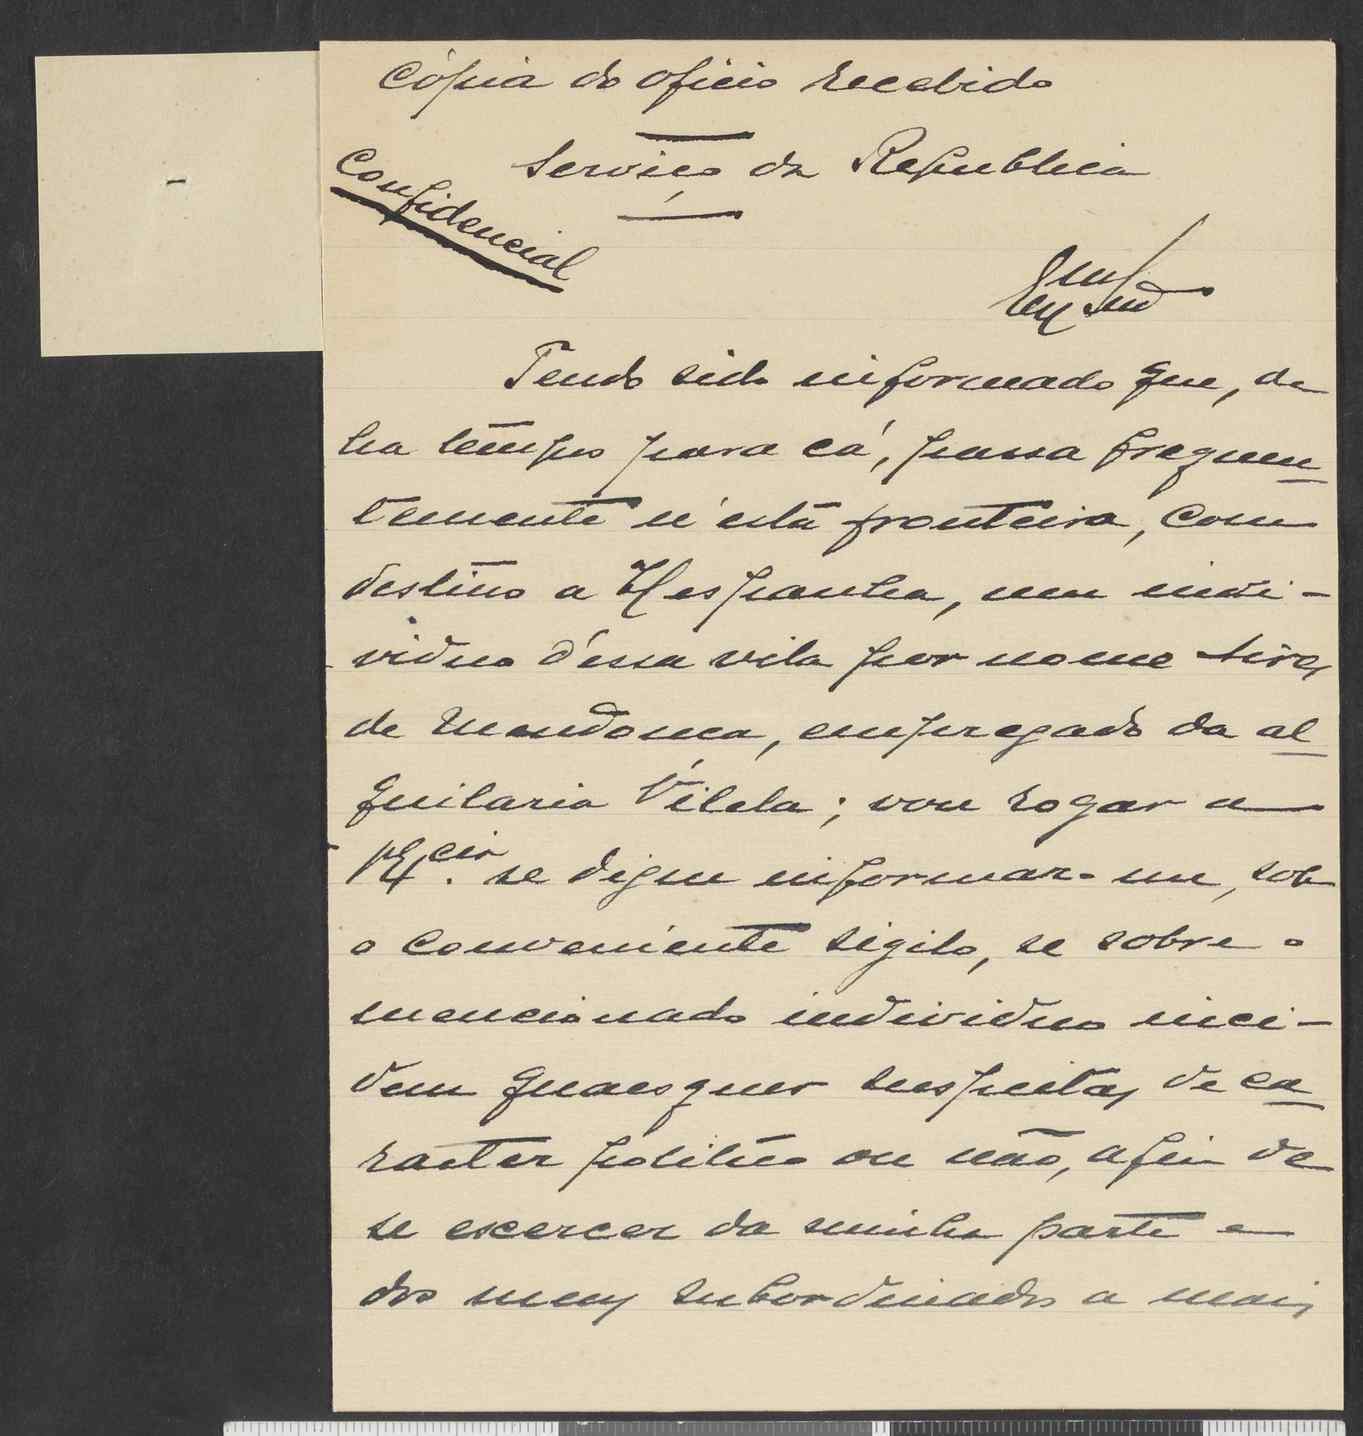 Cópia do oficio recebido
Serviço da Republica
Confidencial
Exmo Snr
Tendo sido informado que, de
ha tempos para cá, passa frequen
temente n'esta fronteira, com
destino a Hespanha, um indi-
viduo d'essa vila por nome Aires
de Mendonca, empregado da al
quilaria Vilela; vou rogar a
V. Excia. se digne informar-me, sob
o conveniente sigilo, se sobre o
mencionado individuo inci-
dem quaesquer suspeitas de ca
racter politico ou não, afim de
se exercer da minha parte e
dos meus subordinados a mais